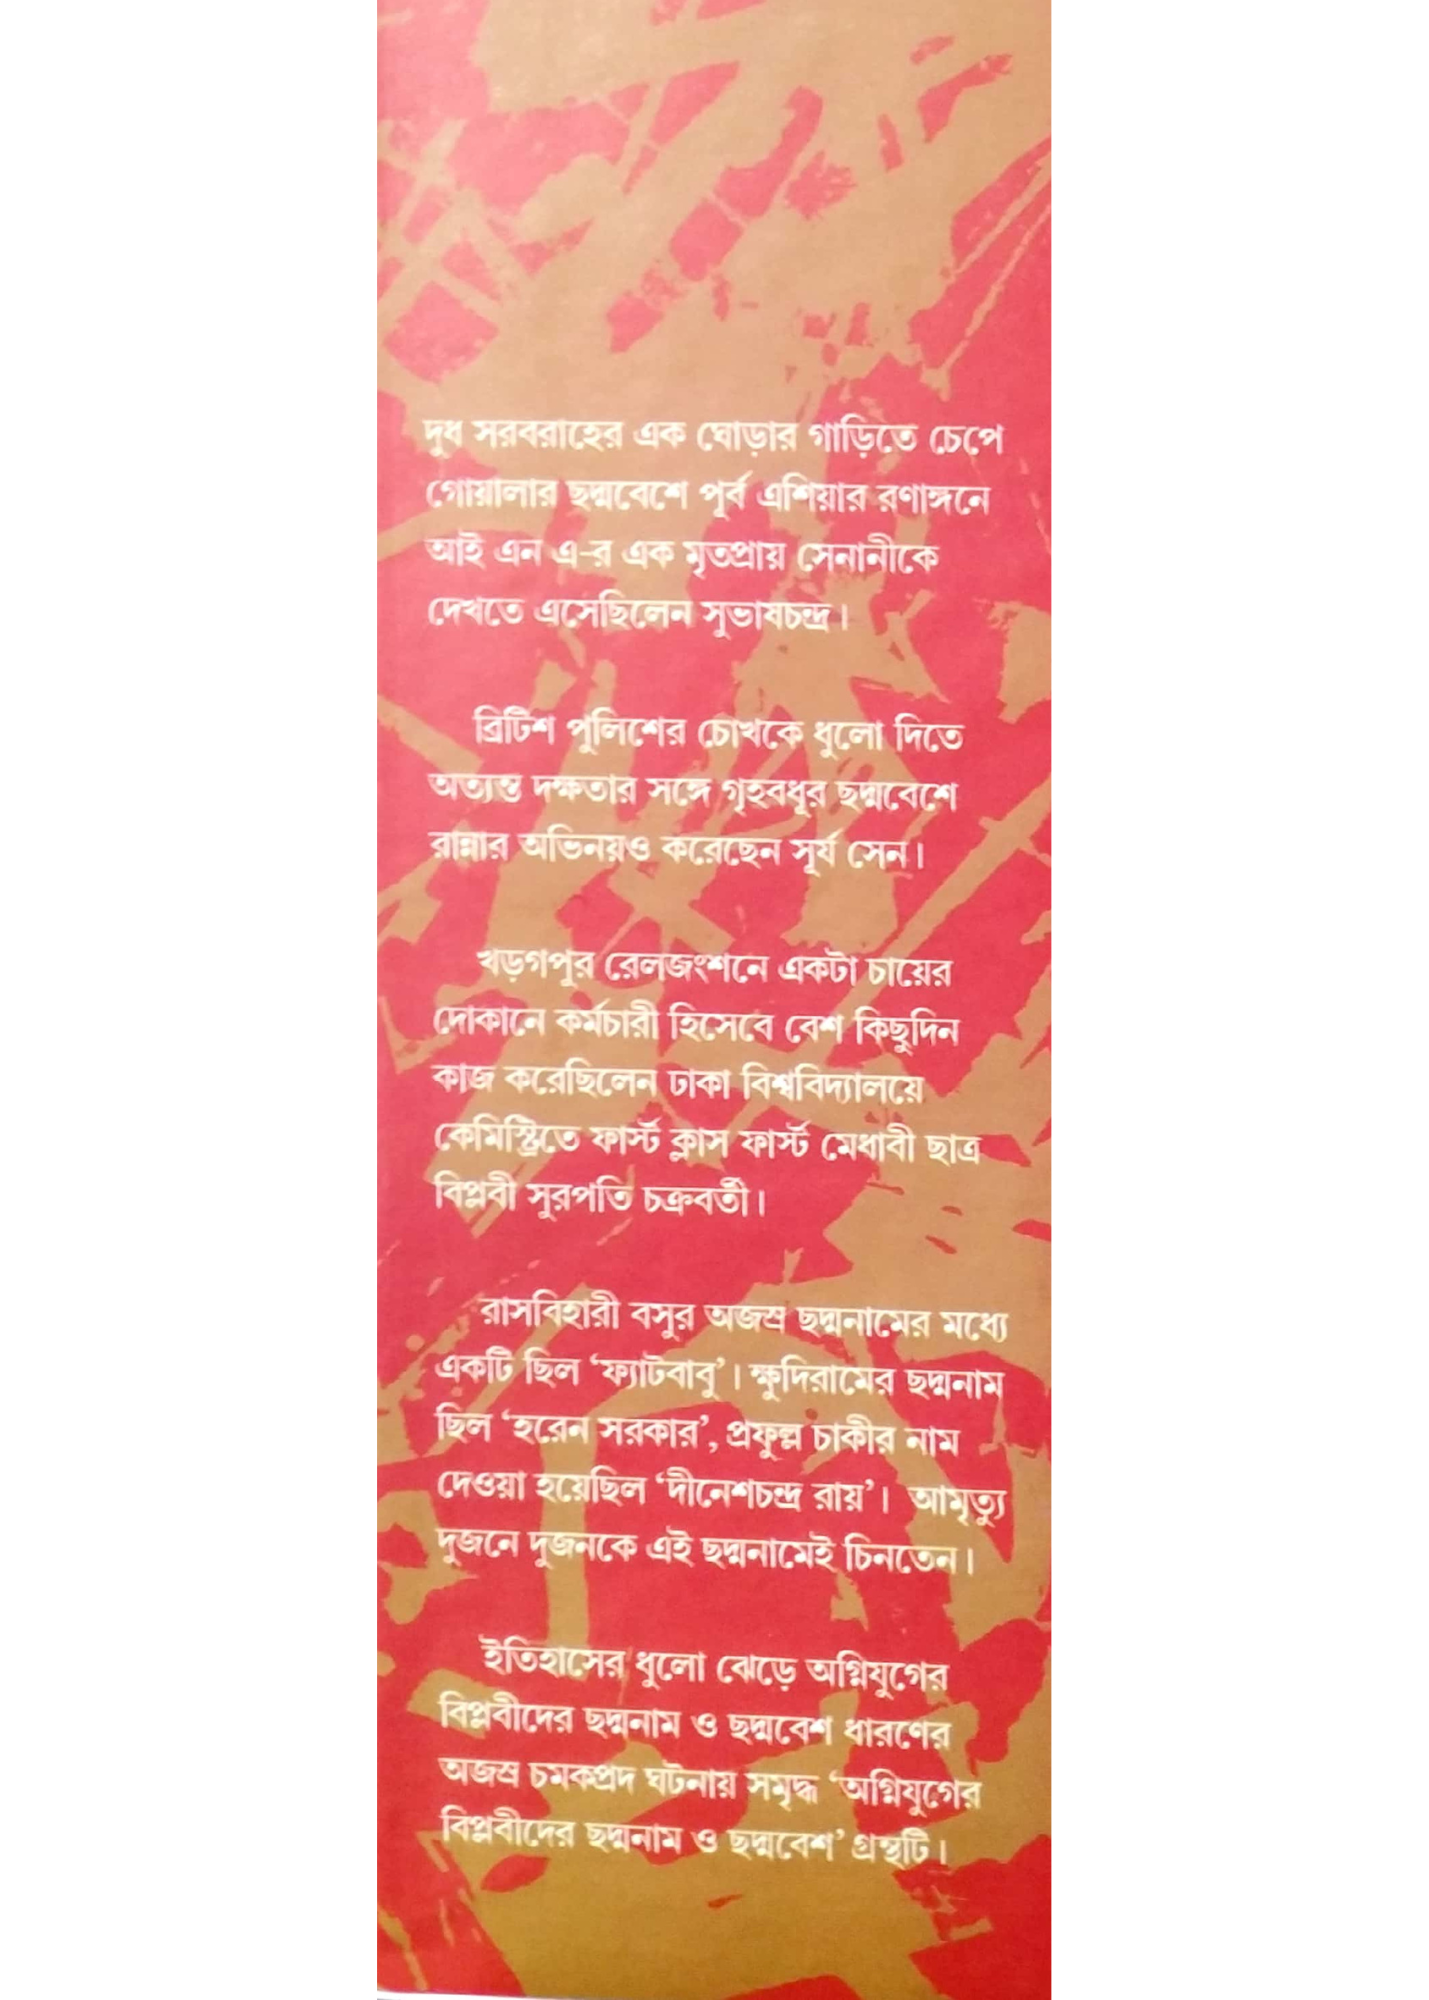 দুধ সরবরাহের এক ঘোড়ার গাড়িতে চেপে
গোয়ালার ছদ্মবেশে পূর্ব এশিয়ার রণাঙ্গনে
আই এন এ-র এক মৃতপ্রায় সেনানীকে
দেখতে এসেছিলেন সুভাষচন্দ্র।
ব্রিটিশ পুলিশের চোখকে ধুলো দিতে
অত্যন্ত দক্ষতার সঙ্গে গৃহবধূর ছদ্মবেশে
রান্নার অভিনয়ও করেছেন সূর্য সেন।
খড়গপুর রেলজংশনে একটা চায়ের
দোকানে কর্মচারী হিসেবে বেশ কিছুদিন
কাজ করেছিলেন ঢাকা বিশ্ববিদ্যালয়ে
কেমিস্ট্রিতে ফার্স্ট ক্লাস ফার্স্ট মেধাবী ছাত্র
বিপ্লবী সুরপতি চক্রবর্তী।
রাসবিহারী বসুর অজস্র ছদ্মনামের মধ্যে
একটি ছিল ‘ফ্যাটবাবু’। ক্ষুদিরামের ছদ্মনাম
ছিল ‘হরেন সরকার’, প্রফুল্ল চাকীর নাম
দেওয়া হয়েছিল ‘দীনেশচন্দ্র রায়’। আমৃত্যু
দুজনে দুজনকে এই ছদ্মনামেই চিনতেন।
ইতিহাসের ধুলো ঝেড়ে অগ্নিযুগের
বিপ্লবীদের ছদ্মনাম ও ছদ্মবেশ ধারণের
অজস্র চমকপ্রদ ঘটনায় সমৃদ্ধ ‘অগ্নিযুগের
বিপ্লবীদের ছদ্মনাম ও ছদ্মবেশ’ গ্রন্থটি।